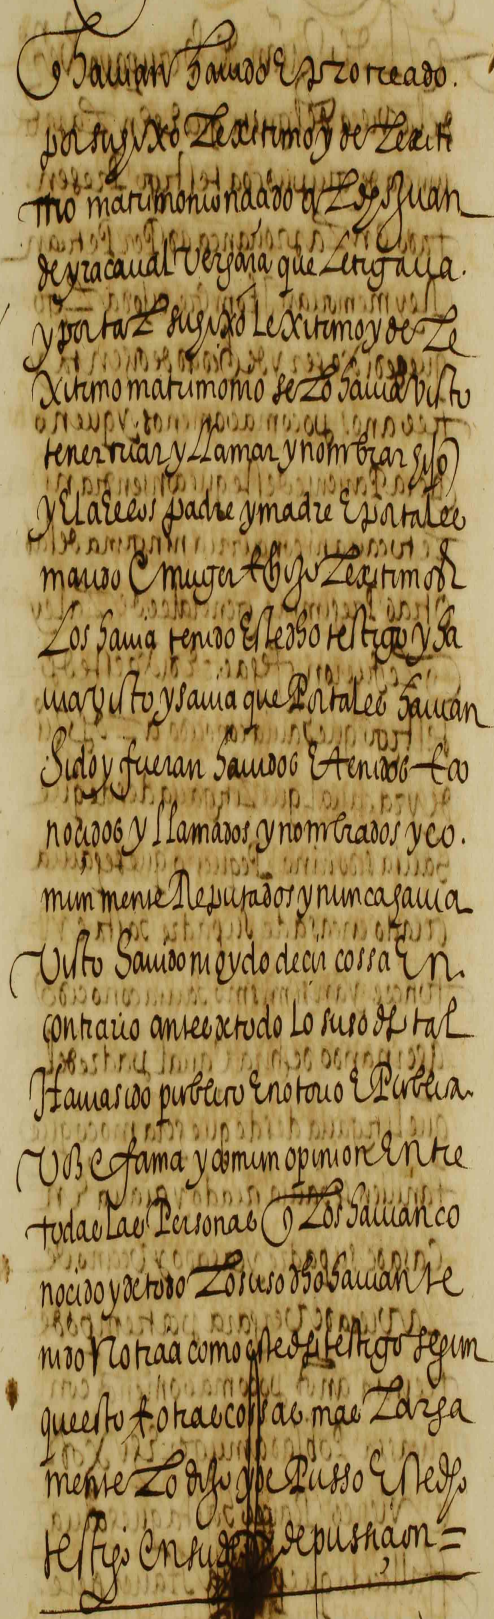 q havian havido E procreado.
por su hixo Lexitimo y de Lexiti
mo matrimonio nacido al dho Juan
de yracaval Vergara que Letigava.
y por tal su hixo Lexitimo y de Le
Xitimo matrimonio se Lo havia visto
tener criar y LLamar y nombrar hijo
y El a Ellos padre y madre E por tales
marido E muger E hijo Lexitimo
Los havia tenido Este dho testigo y ha
via visto y savia que Por tales havian
Sido y fueran havidos E tenidos E co
nocidos y LLamados y nombrados y co.
mun mente Reputados y nunca havia
Visto havido ni oydo decir cossa En.
contrario antes de todo Lo suso dho tal
Havia sido publico E notorio E Publica.
Vos E fama y comun opinion Entre
todas Las Personas q Los havian co
nocido y de todo Lo suso dho havian te
nido Noticia como este dho testigo segun
que esto E otras cossas mas Larga
mente Lo dijo y de Pusso Este dho
testigo En su depussicion =